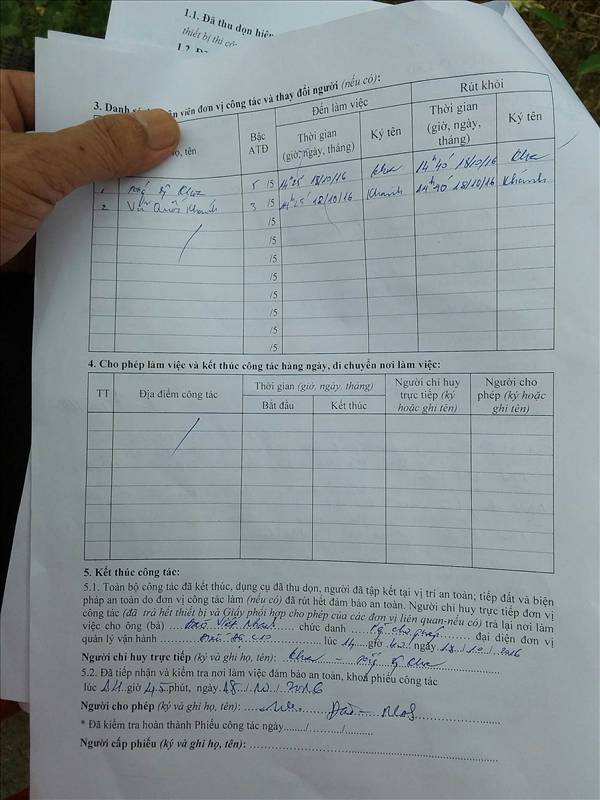 1.1. Đã thu dọn hiện
thiết bị thi cô
3. Danh sá viên đơn vị công tác và thay đổi người (nếu có):
ọ, tên
Bậc ATĐ
Đến làm việc
Rút khỏi
Thời gian (giờ, ngày, tháng)
Ký tên
Thời gian (giờ, ngày, tháng)
Ký tên
1 Kha 5 /5 14h25' 18/10/16 Kha 14h40' 18/10/16 Kha
2 Vũ Quốc Khánh 3 /5 14h25' 18/10/16 Khánh 14h40' 18/10/16 Khánh
/5
/5
/5
/5
/5
/5
/5
4. Cho phép làm việc và kết thúc công tác hàng ngày, di chuyển nơi làm việc:
TT
Địa điểm công tác
Thời gian (giờ, ngày, tháng)
Bắt đầu
Kết thúc
Người chỉ huy trực tiếp (ký hoặc ghi tên)
Người cho phép (ký hoặc ghi tên)
5. Kết thúc công tác:
5.1. Toàn bộ công tác đã kết thúc, dụng cụ đã thu dọn, người đã tập kết tại vị trí an toàn; tiếp đất và biện
pháp an toàn do đơn vị công tác làm (nếu có) đã rút hết đảm bảo an toàn. Người chỉ huy trực tiếp đơn vị
công tác (đã trả hết thiết bị và Giấy phối hợp cho phép của các đơn vị liên quan-nếu có) trả lại nơi làm
việc cho ông (bà) ...... chức danh ...... đại diện đơn vị
quản lý vận hành ...... lúc 14 giờ 40, ngày 18 / 10 / 2016
Người chỉ huy trực tiếp (ký và ghi họ, tên): Kha - Kha
5.2. Đã tiếp nhận và kiểm tra nơi làm việc đảm bảo an toàn, khoá phiếu công tác
lúc 14 giờ 45 phút, ngày 18 / 10 / 2016
Người cho phép (ký và ghi họ, tên):
* Đã kiểm tra hoàn thành Phiếu công tác ngày......./............/...........
Người cấp phiếu (ký và ghi họ, tên):